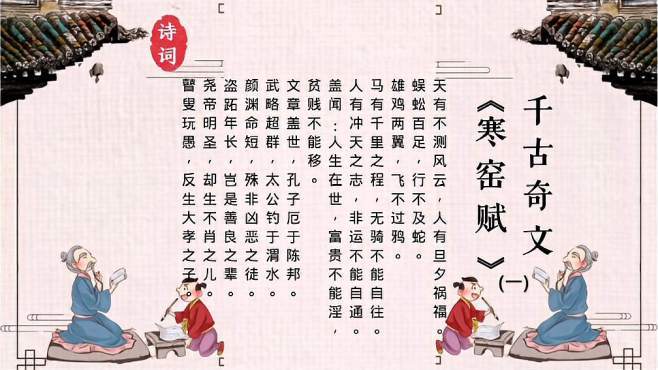 诗词
千古奇文
《寒窑赋》
(一)
天有不测风云，人有旦夕祸福。
蜈蚣百足，行不及蛇。
雄鸡两翼，飞不过鸦。
马有千里之程，无骑不能自往。
人有冲天之志，非运不能自通。
盖闻：人生在世，富贵不能淫，
贫贱不能移。
文章盖世，孔子厄于陈邦。
武略超群，太公钓于渭水。
颜渊命短，殊非凶恶之徒。
盗跖年长，岂是善良之辈。
尧帝明圣，却生不肖之儿。
瞽叟玩愚，反生大孝之子。